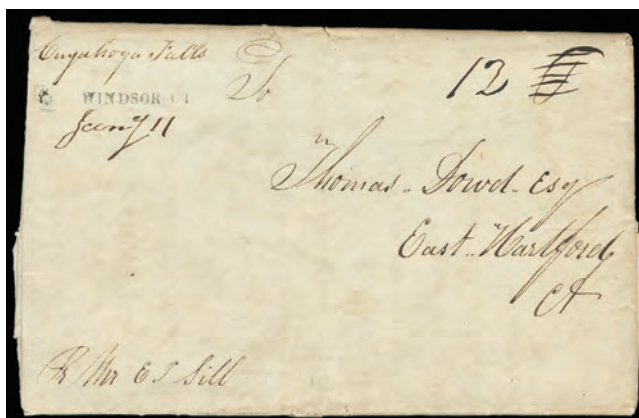 Cuyahoga Falls
WINDSOR CT
Jany 11
To
12
Mr
Thomas Dowd Esq
East Hartford
Ct
Pr Mr E S Sill